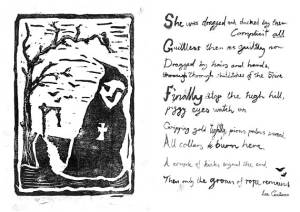 She was dragged and ducked by them
Complicit all
Guiltless then as guiltless now
Dragged by hairs and hands,
through ditches of the
Finally atop the high hill,
piggy eyes watch on
Gripping gold tightly, pious palms sweat
All collars is burn here.
A of birds the end
Then only the groans of rope remains